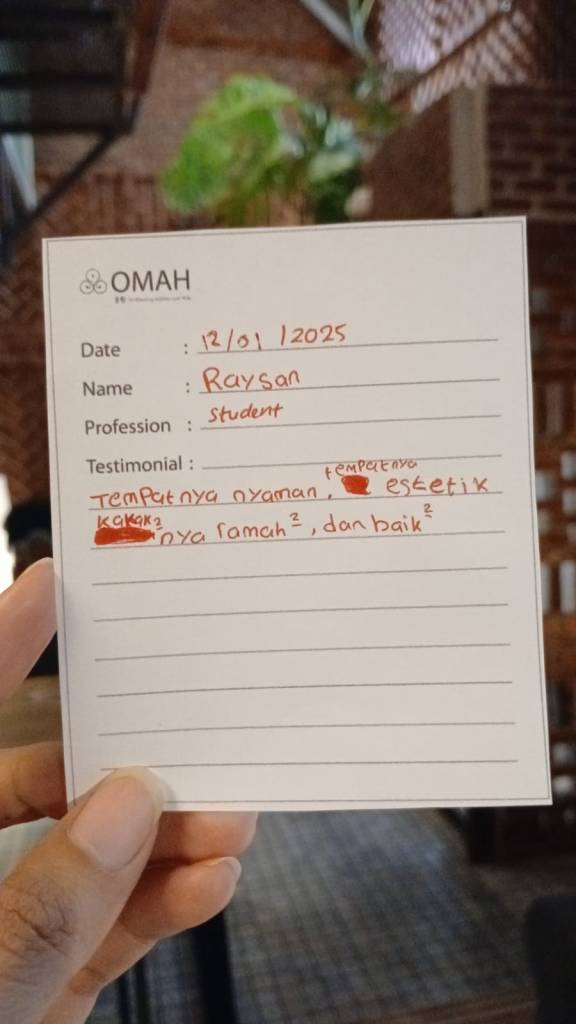 OMAH
Date : 12/01/2025
Name : Raysan
Profession : Student
Testimonial :
Tempatnya nyaman, tempatnya estetik
kakak2nya ramah², dan baik²